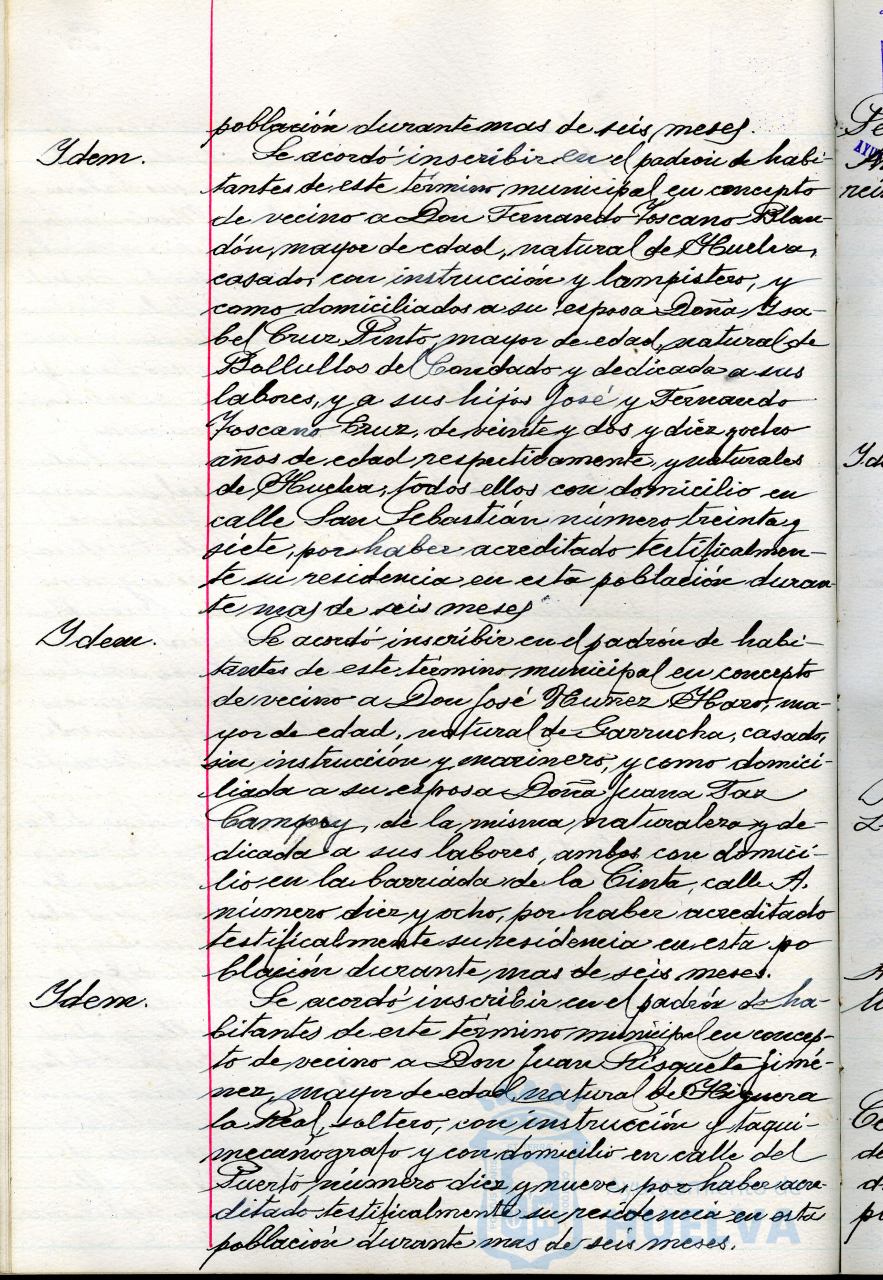 población durante mas de seis meses.
Ydem. Se acordó inscribir en el padrón de habi-
tantes de este término municipal en concepto
de vecino a Don Fernando Toscano Blan-
dón, mayor de edad, natural de Huelva,
casado, con instrucción y lampistero, y
como domiciliados a su esposa Doña Ysa-
bel Cruz Pinto, mayor de edad, natural de
Bollullos del Condado y dedicada a sus
labores, y a sus hijos José y Fernando
Toscano Cruz, de veinte y dos y diez y ocho
años de edad respectivamente, y naturales
de Huelva, todos ellos con domicilio en
calle San Sebastián número treinta y
siete, por haber acreditado testificalmen-
te su residencia en esta población duran-
te mas de seis meses
Ydem. Se acordó inscribir en el padrón de habi-
tantes de este término municipal en concepto
de vecino a Don José Nuñez Haro, ma-
yor de edad, natural de Garrucha, casado,
sin instrucción y marinero, y como domici-
liada a su esposa Doña Juana
Campoy, de la misma naturaleza y de-
dicada a sus labores, ambos con domici-
lio en la barriada de la Cinta, calle A.
número diez y ocho, por haber acreditado
testificalmente su residencia en esta po
blación durante mas de seis meses.
Ydem. Se acordó inscribir en el padrón de ha-
bitantes de este término municipal en concep-
to de vecino a Don Juan Risquete Jimé-
nez, mayor de edad, natural de Higuera
la Real, soltero, con instrucción y taqui-
mecanógrafo y con domicilio en calle del
Puerto número diez y nueve, por haber acre-
ditado testificalmente su residencia en esta
población durante mas de seis meses.
Ayuntamiento de
HUELVA